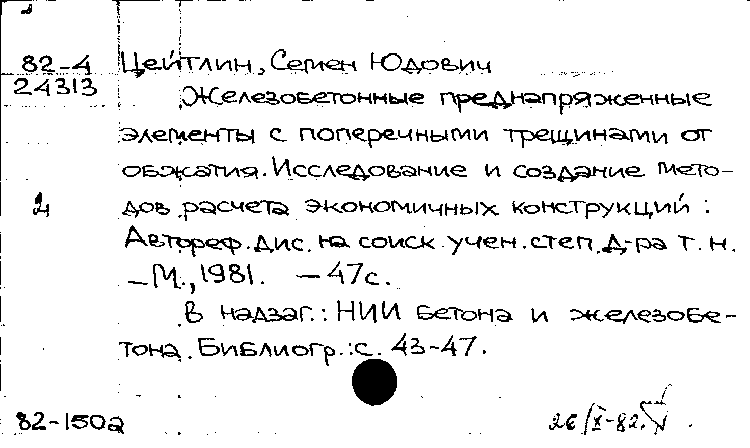 82-4 Цейтлин, Семен Юдович
24313 Железобетонные преднапряженные
элементы с поперечными трещинами от
обжатия. Исследование и создание мето-
2 дов расчета экономичных конструкций :
Автореф. дис. на соиск. учен. степ. д-ра т. н.
– М., 1981. – 47 с.
В надзаг.: НИИ бетона и железобе-
тона. Библиогр.: с. 43-47.
82-150а 26/X-82.